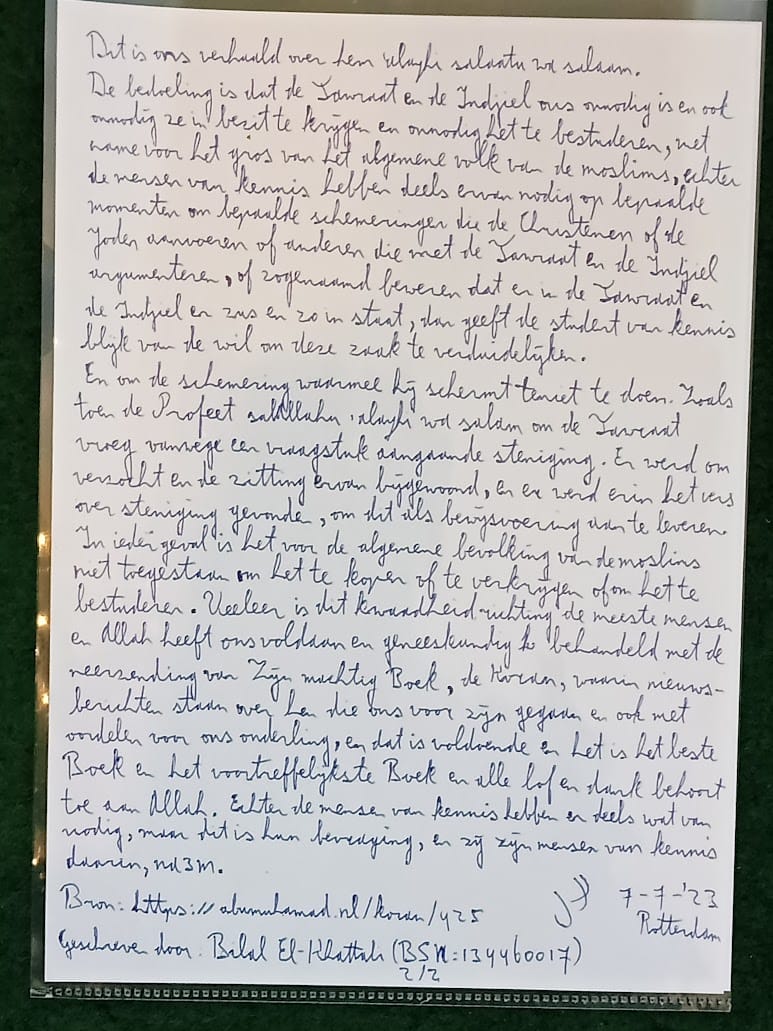 Dit is ons verhaald over hem 'alayhi salaatu wa salaam.
De bedoeling is dat de Tawraat en de Indjiel ons onnodig is en ook
onnodig ze in bezit te krijgen en onnodig het te bestuderen, met
name voor het gros van het algemene volk van de moslims, echter
de mensen van kennis hebben deels ervan nodig op bepaalde
momenten om bepaalde schemeringen die de Christenen of de
Joden aanvoeren of anderen die met de Tawraat en de Indjiel
argumenteren, of zogenaamd beweren dat er in de Tawraat en
de Indjiel er zus en zo in staat, dan geeft de student van kennis
blijk van de wil om deze zaak te verduidelijken.
En om de schemering waarmee hij schermt teniet te doen. Zoals
toen de Profeet salAllahu 'alayhi wa salam om de Tawraat
vroeg vanwege een vraagstuk aangaande steniging. Er werd om
verzocht en de zitting ervan bijgewoond, en er werd erin het vers
over steniging gevonden, om dit als bewijsvoering aan te leveren.
In ieder geval is het voor de algemene bevolking van de moslims
niet toegestaan om het te kopen of te verkrijgen of om het te
bestuderen. Veeleer is dit kwaadheid-richting de meeste mensen
en Allah heeft ons voldaan en geneeskundig behandeld met de
neerzending van Zijn machtig Boek, de Koran, waarin nieuws-
berichten staan over hen die ons voor zijn gegaan en ook met
oordelen voor ons onderling, en dat is voldoende en het is het beste
Boek en het voortreffelijkste Boek en alle lof en dank behoort
toe aan Allah. Echter de mensen van kennis hebben er deels wat van
nodig, maar dit is hun bevraging, en zij zijn mensen van kennis
daarin, na3m.
Bron: https://abumuhamad.nl/koran/425
7-7-'23
Rotterdam
Geschreven door: Bilal El-Khattabi (BSN:134460017)
2/2